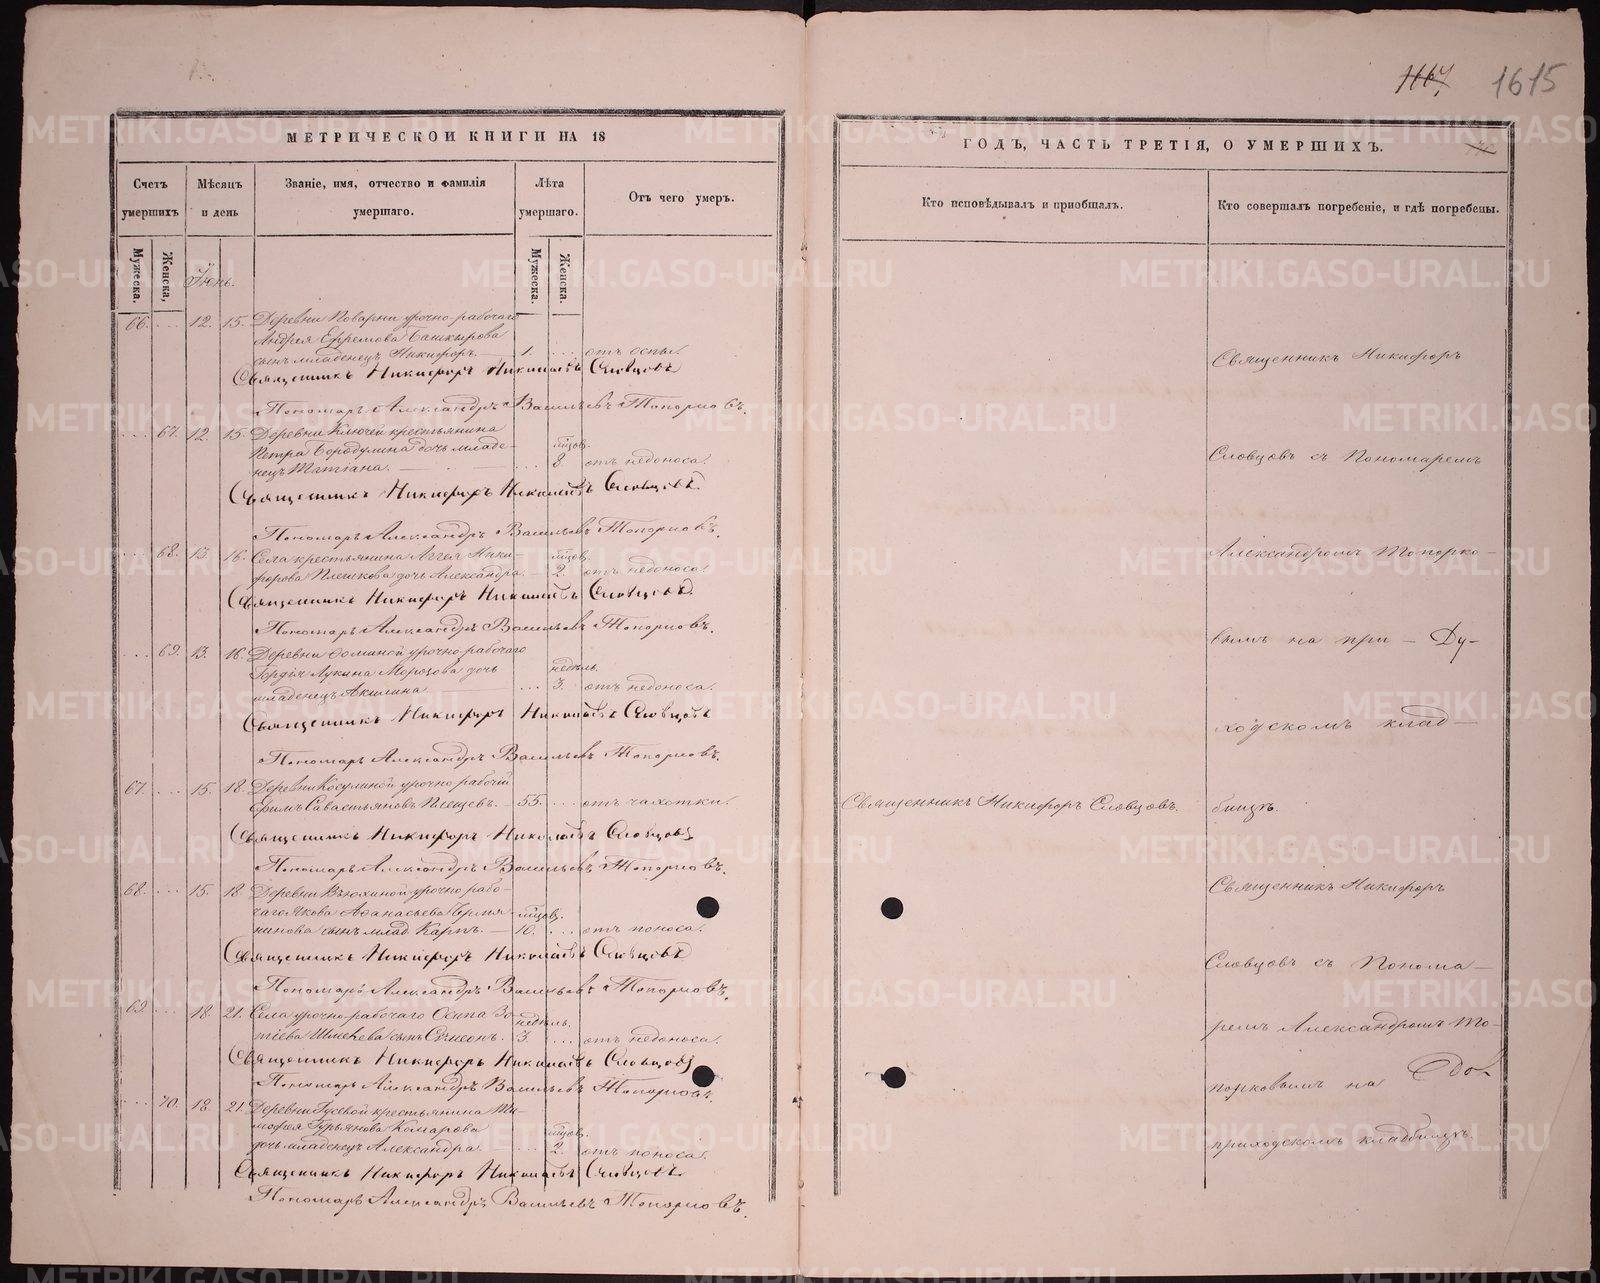 1107 1615
МЕТРИЧЕСКОЙ КНИГИ НА 18
Счетъ умершихъ
Мѣсяцъ и день
Званіе, имя, отчество и фамилія умершаго.
Лѣта умершаго.
Отъ чего умеръ.
Мужеска.
Женска,
Мужеска.
Женска.
Іюнь.
66. ... 12. 15. Деревни Поварни урочно-рабочаго
Андрея Ефремова Башкирова
сынъ младенецъ Никифоръ. 1. ... отъ оспы.
Священникъ Никифоръ Николаевъ Словцовъ
Пономарь Александръ Васильевъ Топорковъ.
... 67. 12. 15. Деревни Ключей крестьянина
Петра Бородулина дочь младе-
нецъ Татіана. ... мѣсяцов. 8 отъ недоноса.
Священникъ Никифоръ Николаевъ Словцовъ
Пономарь Александръ Васильевъ Топорковъ.
... 68. 13. 16. Села крестьянина Аггея Ники-
форова Плешкова дочь Александра. мѣсяцов. 2. отъ недоноса.
Священникъ Никифоръ Николаевъ Словцовъ
Пономарь Александръ Васильевъ Топорковъ.
... 69. 13. 16. Деревни Фоминой урочно-рабочаго
Гордія Лукина Морозова дочь
младенецъ Акилина. ... недѣль. 3. отъ недоноса.
Священникъ Никифоръ Николаевъ Словцовъ
Пономарь Александръ Васильевъ Топорковъ.
67. ... 15. 18. Деревни Косулиной урочно рабочій
Ефимъ Савастьяновъ Плещевъ. 55. ... отъ чахотки.
Священникъ Никифоръ Николаевъ Словцовъ
Пономарь Александръ Васильевъ Топорковъ.
68. ... 15. 18. Деревни Вьюхиной урочно рабо-
чаго Якова Аѳанасьева
сынъ млад. Карпъ. мѣсяцов. 10. ... отъ поноса.
Священникъ Никифоръ Николаевъ Словцовъ
Пономарь Александръ Васильевъ Топорковъ.
69. ... 18. 21. Села урочно-рабочаго Осипа Зо-
тіева сынъ Сѵмеонъ. недѣль. 3. ... отъ недоноса.
Священникъ Никифоръ Николаевъ Словцовъ
Пономарь Александръ Васильевъ Топорковъ.
... 70. 18. 21. Деревни Гусевой крестьянина Ти-
мофея Гурьянова Комарова
дочь младенецъ Александра. мѣсяцов. 2. отъ поноса.
Священникъ Никифоръ Николаевъ Словцовъ.
Пономарь Александръ Васильевъ Топорковъ.
ГОДЪ, ЧАСТЬ ТРЕТІЯ, О УМЕРШИХЪ.
Кто исповѣдывалъ и пріобщалъ.
Кто совершалъ погребеніе, и гдѣ погребены.
Священникъ Никифоръ
Словцовъ съ Пономаремъ
Александромъ Топорко-
вымъ на при-
ходскомъ клад-
Священникъ Никифоръ Словцовъ.
бищѣ.
Священникъ Никифоръ
Словцовъ съ Понома-
ремъ Александромъ То-
порковымъ на
приходскомъ кладбищѣ.
METRIKI.GASO-URAL.RU